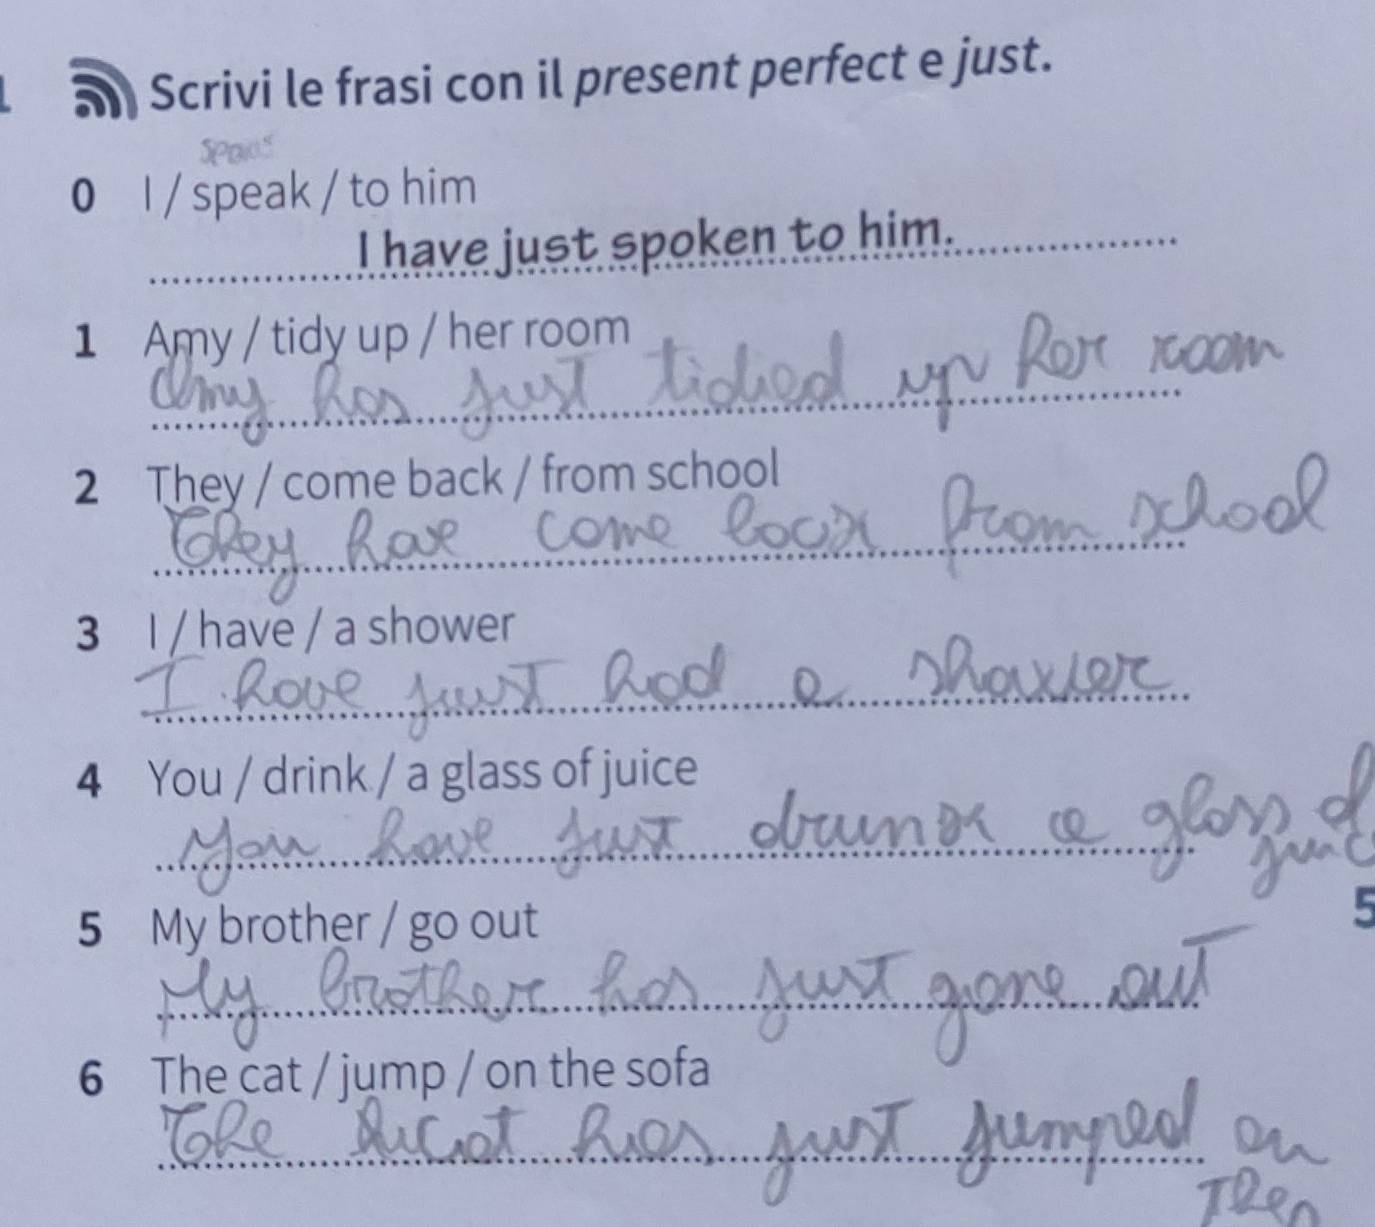 Scrivi le frasi con il present perfect e just.
0 I / speak / to him
I have just spoken to him.
1 Amy / tidy up / her room
Amy has just tidied up her room
2 They / come back / from school
They have come back from school
3 I / have / a shower
I have just had a shower
4 You / drink / a glass of juice
You have just drunk a glass of
5 My brother / go out
5
My brother has just gone out
6 The cat / jump / on the sofa
The cat has just jumped on